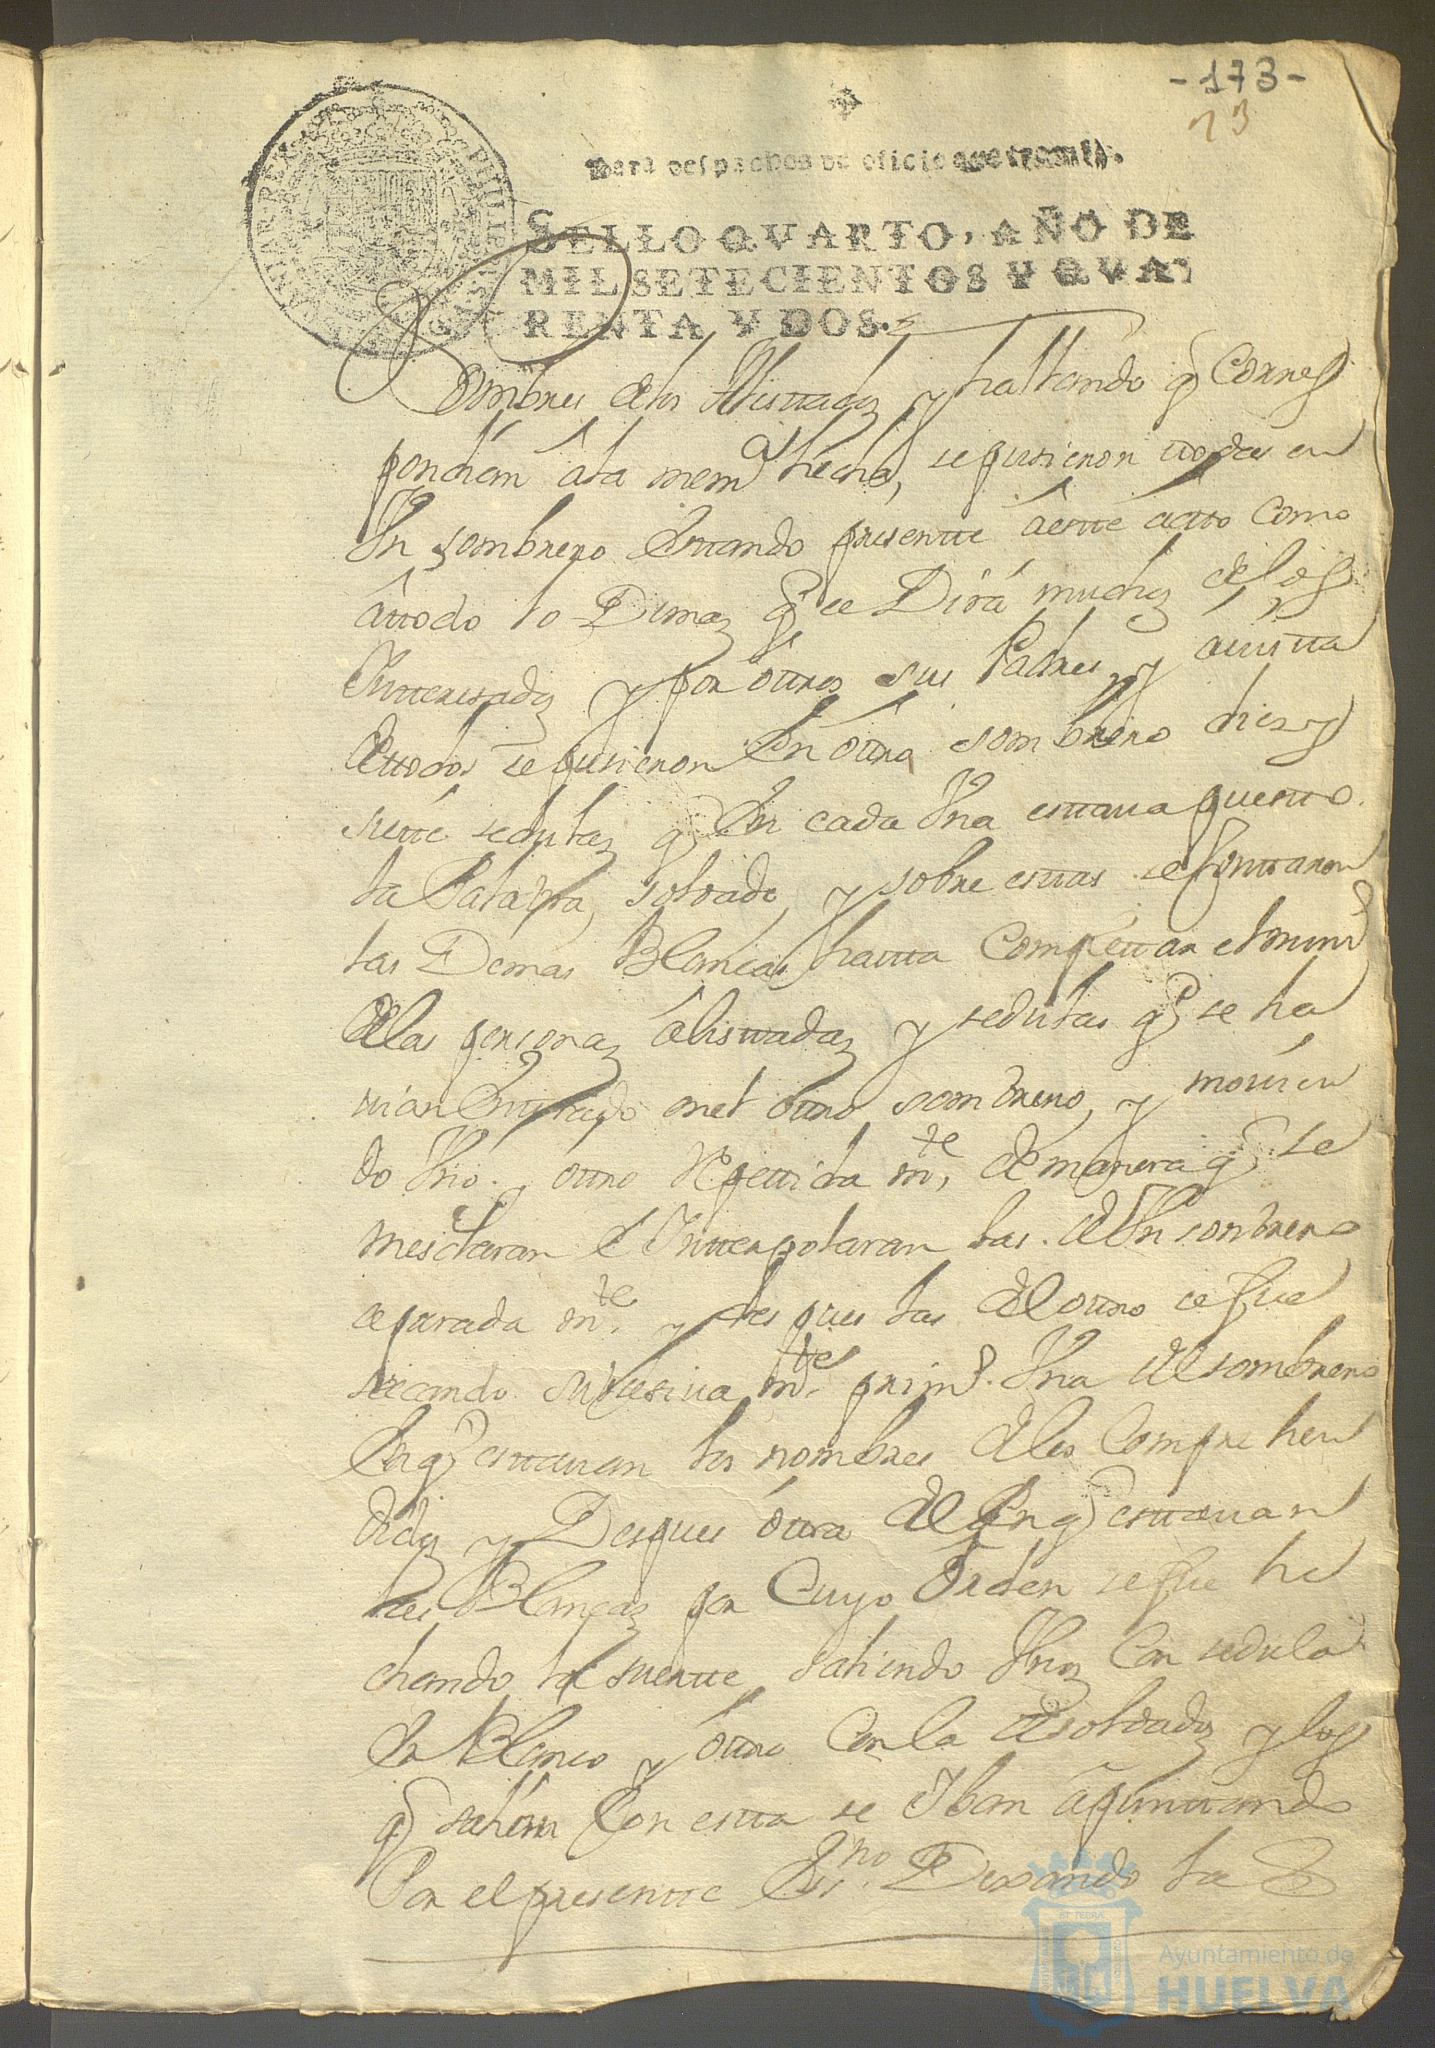 -173-
73
Para despachos de oficio quatro mrs.
SELLO QVARTO, AÑO DE
MIL SETECIENTOS Y QVA-
RENTA Y DOS.
Nombres delos Alistados y hallando q̃ Corres
pondian âla memᵃ hecha, se pusieron ttodas en
Un sombrero Estando presentte âestte âcto como
âttodo lo Demas q̃ se Dirá muchos delos
Ynteresados y por ôttros sus Padres, y âvista
dettodos se pusieron En ôttro sombrero dies y
siette sedulas q̃ En cada Una esttava puestto
la Palabra soldado, y sobre esttas se Junttaron
las Demas Blancas hastta Complettar el numº
delas personas âlisttadas y sedulas q̃ se ha
vian Enttrado enel ôttro sombrero, y movien
do Uno y ôttro Repettida mᵗᵉ, de manera q̃ se
mesclaran e Yntterpolaran las de Un sombrero
separada mᵗᵉ, y despues las del ôttro se fue
sacando subcesiva mᵗᵉ primº Una del sombrero
En q̃ esttavan los nombres delos Comprehen
didos y Despues ôttra del En q̃ esttavan
las Blancas por Cuyo Orden se fue he
chando la suertte saliendo Unos Con sedula
En Blanco y ôttros Con la de soldados y los
q̃ salian Con estta se Yban âpunttando
Por el presentte Essⁿᵒ. Dexando la
Ayuntamiento de
HUELVA